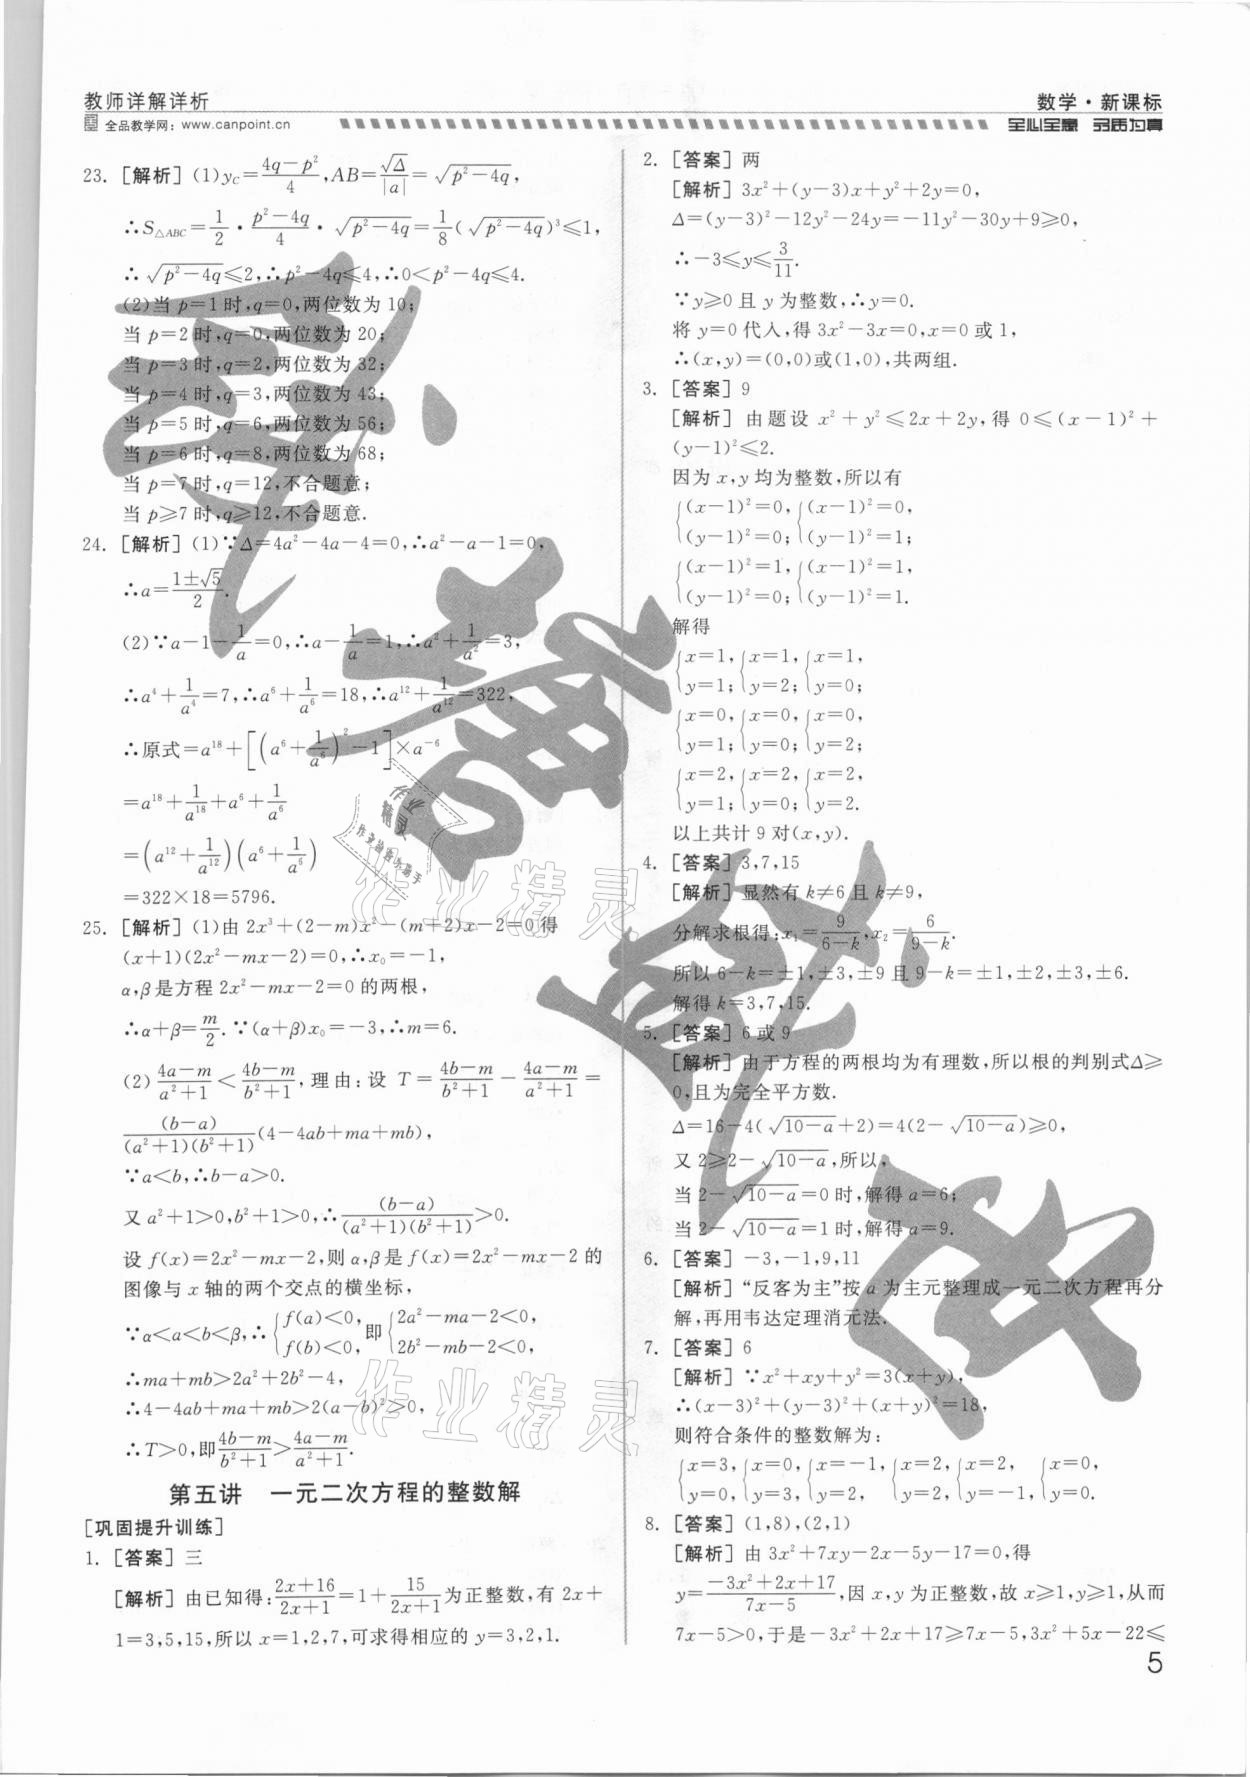 教师详解详析
全品教学网：www.canpoint.cn
数学·新课标
全心全意 品质为真
23. [解析] (1)y_C=(4q-p²)/4,AB=√Δ/|a|=√(p²-4q),
∴S△ABC=1/2·(p²-4q)/4·√(p²-4q)=1/8(√(p²-4q))³≤1,
∴√(p²-4q)≤2,∴p²-4q≤4,∴0<p²-4q≤4.
(2)当 p=1时,q=0,两位数为10;
当 p=2时,q=0,两位数为20;
当 p=3时,q=2,两位数为32;
当 p=4时,q=3,两位数为43;
当 p=5时,q=6,两位数为56;
当 p=6时,q=8,两位数为68;
当 p=7时,q=12,不合题意;
当 p≥7时,q≥12,不合题意.
24. [解析] (1)∵Δ=4a²-4a-4=0,∴a²-a-1=0,
∴a=(1±√5)/2.
(2)∵a-1-1/a=0,∴a-1/a=1,∴a²+1/a²=3,
∴a⁴+1/a⁴=7,∴a⁶+1/a⁶=18,∴a¹²+1/a¹²=322,
∴原式=a¹⁸+[(a⁶+1/a⁶)²-1]×a⁻⁶
=a¹⁸+1/a¹⁸+a⁶+1/a⁶
=(a¹²+1/a¹²)(a⁶+1/a⁶)
=322×18=5796.
25. [解析] (1)由 2x³+(2-m)x²-(m+2)x-2=0得
(x+1)(2x²-mx-2)=0,∴x₀=-1,
α,β是方程 2x²-mx-2=0的两根,
∴α+β=m/2.∵(α+β)x₀=-3,∴m=6.
(2)(4a-m)/(a²+1)<(4b-m)/(b²+1),理由:设 T=(4b-m)/(b²+1)-(4a-m)/(a²+1)=
(b-a)/((a²+1)(b²+1))(4-4ab+ma+mb),
∵a<b,∴b-a>0.
又 a²+1>0,b²+1>0,∴(b-a)/((a²+1)(b²+1))>0.
设 f(x)=2x²-mx-2,则 α,β是 f(x)=2x²-mx-2的
图像与 x 轴的两个交点的横坐标,
∵α<a<b<β,∴{f(a)<0, f(b)<0,即{2a²-ma-2<0, 2b²-mb-2<0,
∴ma+mb>2a²+2b²-4,
∴4-4ab+ma+mb>2(a-b)²>0,
∴T>0,即(4b-m)/(b²+1)>(4a-m)/(a²+1).
第五讲 一元二次方程的整数解
[巩固提升训练]
1. [答案] 三
[解析] 由已知得:(2x+16)/(2x+1)=1+15/(2x+1)为正整数,有 2x+
1=3,5,15,所以 x=1,2,7,可求得相应的 y=3,2,1.
2. [答案] 两
[解析] 3x²+(y-3)x+y²+2y=0,
Δ=(y-3)²-12y²-24y=-11y²-30y+9≥0,
∴-3≤y≤3/11.
∵y≥0且 y 为整数,∴y=0.
将 y=0代入,得 3x²-3x=0,x=0或1,
∴(x,y)=(0,0)或(1,0),共两组.
3. [答案] 9
[解析] 由题设 x²+y²≤2x+2y,得 0≤(x-1)²+
(y-1)²≤2.
因为 x,y均为整数,所以有
{(x-1)²=0, (y-1)²=0; {(x-1)²=0, (y-1)²=1;
{(x-1)²=1, (y-1)²=0; {(x-1)²=1, (y-1)²=1.
解得
{x=1, y=1; {x=1, y=2; {x=1, y=0;
{x=0, y=1; {x=0, y=0; {x=0, y=2;
{x=2, y=1; {x=2, y=0; {x=2, y=2.
以上共计9对(x,y).
4. [答案] 3,7,15
[解析] 显然有 k≠6且 k≠9,
分解求根得:x₁=9/(6-k),x₂=6/(9-k).
所以 6-k=±1,±3,±9且 9-k=±1,±2,±3,±6.
解得 k=3,7,15.
5. [答案] 6或9
[解析] 由于方程的两根均为有理数,所以根的判别式Δ≥
0,且为完全平方数.
Δ=16-4(√(10-a)+2)=4(2-√(10-a))≥0,
又 2≥2-√(10-a),所以,
当 2-√(10-a)=0时,解得 a=6;
当 2-√(10-a)=1时,解得 a=9.
6. [答案] -3,-1,9,11
[解析] “反客为主”按 a 为主元整理成一元二次方程再分
解,再用韦达定理消元法.
7. [答案] 6
[解析] ∵x²+xy+y²=3(x+y),
∴(x-3)²+(y-3)²+(x+y)²=18,
则符合条件的整数解为:
{x=3, y=0, {x=0, y=3, {x=-1, y=2, {x=2, y=2, {x=2, y=-1, {x=0, y=0.
8. [答案] (1,8),(2,1)
[解析] 由 3x²+7xy-2x-5y-17=0,得
y=(-3x²+2x+17)/(7x-5),因 x,y 为正整数,故 x≥1,y≥1,从而
7x-5>0,于是-3x²+2x+17≥7x-5,3x²+5x-22≤
5
作业精灵
作业精灵
作业精灵